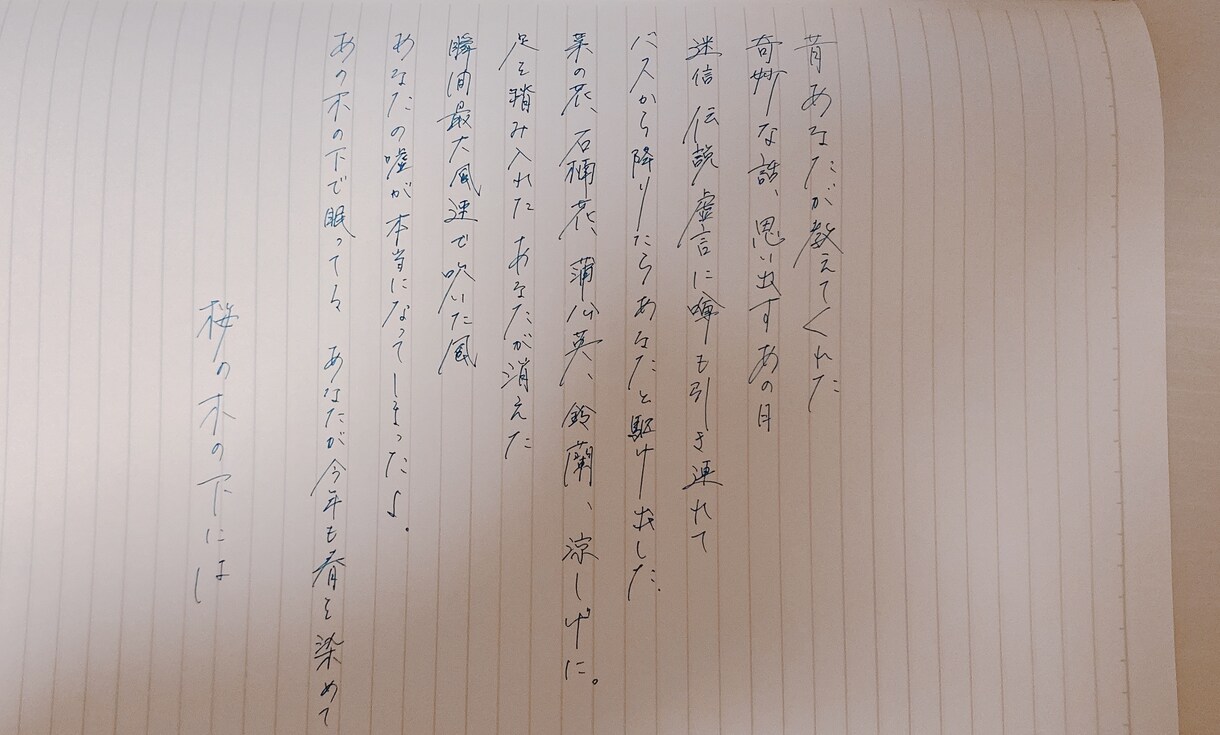 昔あなたが教えてくれた
奇妙な話、思い出すあの日
迷信 伝説 虚言に噂も引き連れて
バスから降りたらあなたと駆け出した.
菜の花、石楠花、蒲公英、鈴蘭、涼しげに。
足を踏み入れた あなたが消えた
瞬間最大風速で吹いた風
あなたの嘘が本当になってしまったよ.
あの木の下で眠ってる あなたが今年も春を染めて
桜の木の下には